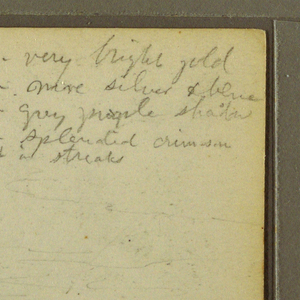 very bright gold
more silver & blue
grey purple shadow
splended crimson
in streaks